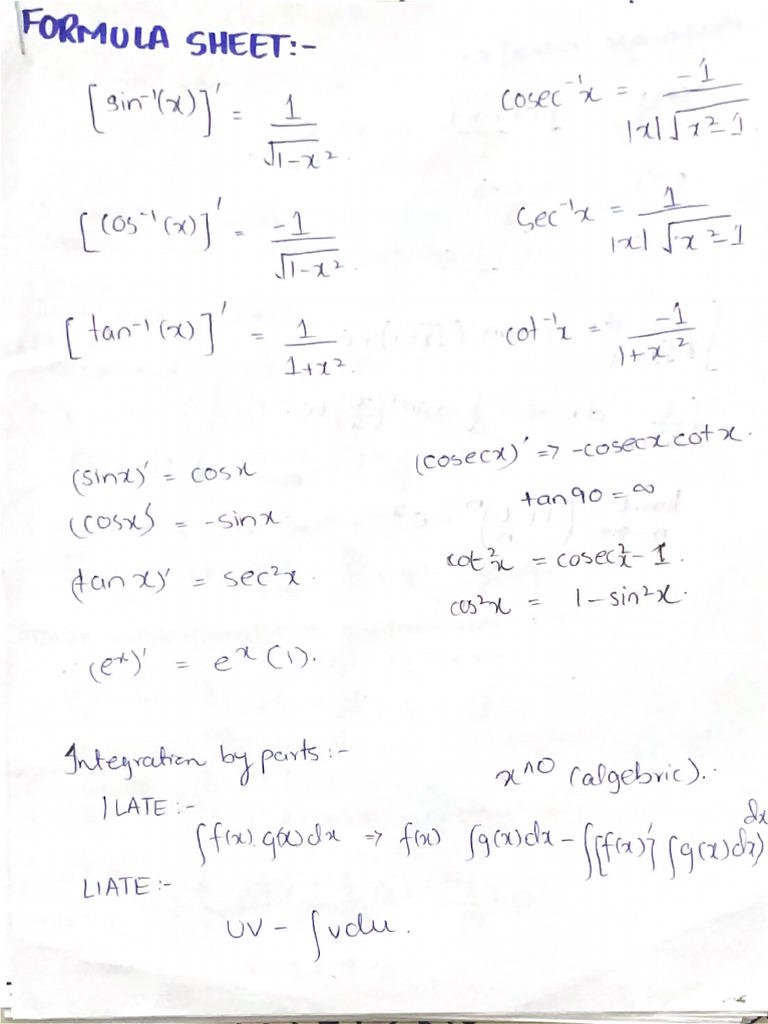 FORMULA SHEET:-
[sin⁻¹(x)]' = 1/√1-x²
cosec⁻¹x = -1/|x|√x²-1
[cos⁻¹(x)]' = -1/√1-x²
sec⁻¹x = 1/|x|√x²-1
[tan⁻¹(x)]' = 1/1+x²
cot⁻¹x = -1/1+x²
(sinx)' = cosx
(cosx)' = -sinx
(tanx)' = sec²x.
(eˣ)' = eˣ(1).
(cosecx)' => -cosecx cotx.
tan90 = ∞
cot²x = cosec²x-1.
cos²x = 1-sin²x.
Integration by parts:-
x^0 (algebric).
ILATE:-
∫f(x).g(x)dx => f(x) ∫g(x)dx - ∫[f(x)]' ∫g(x)dx) dx
LIATE:-
UV - ∫vdu.